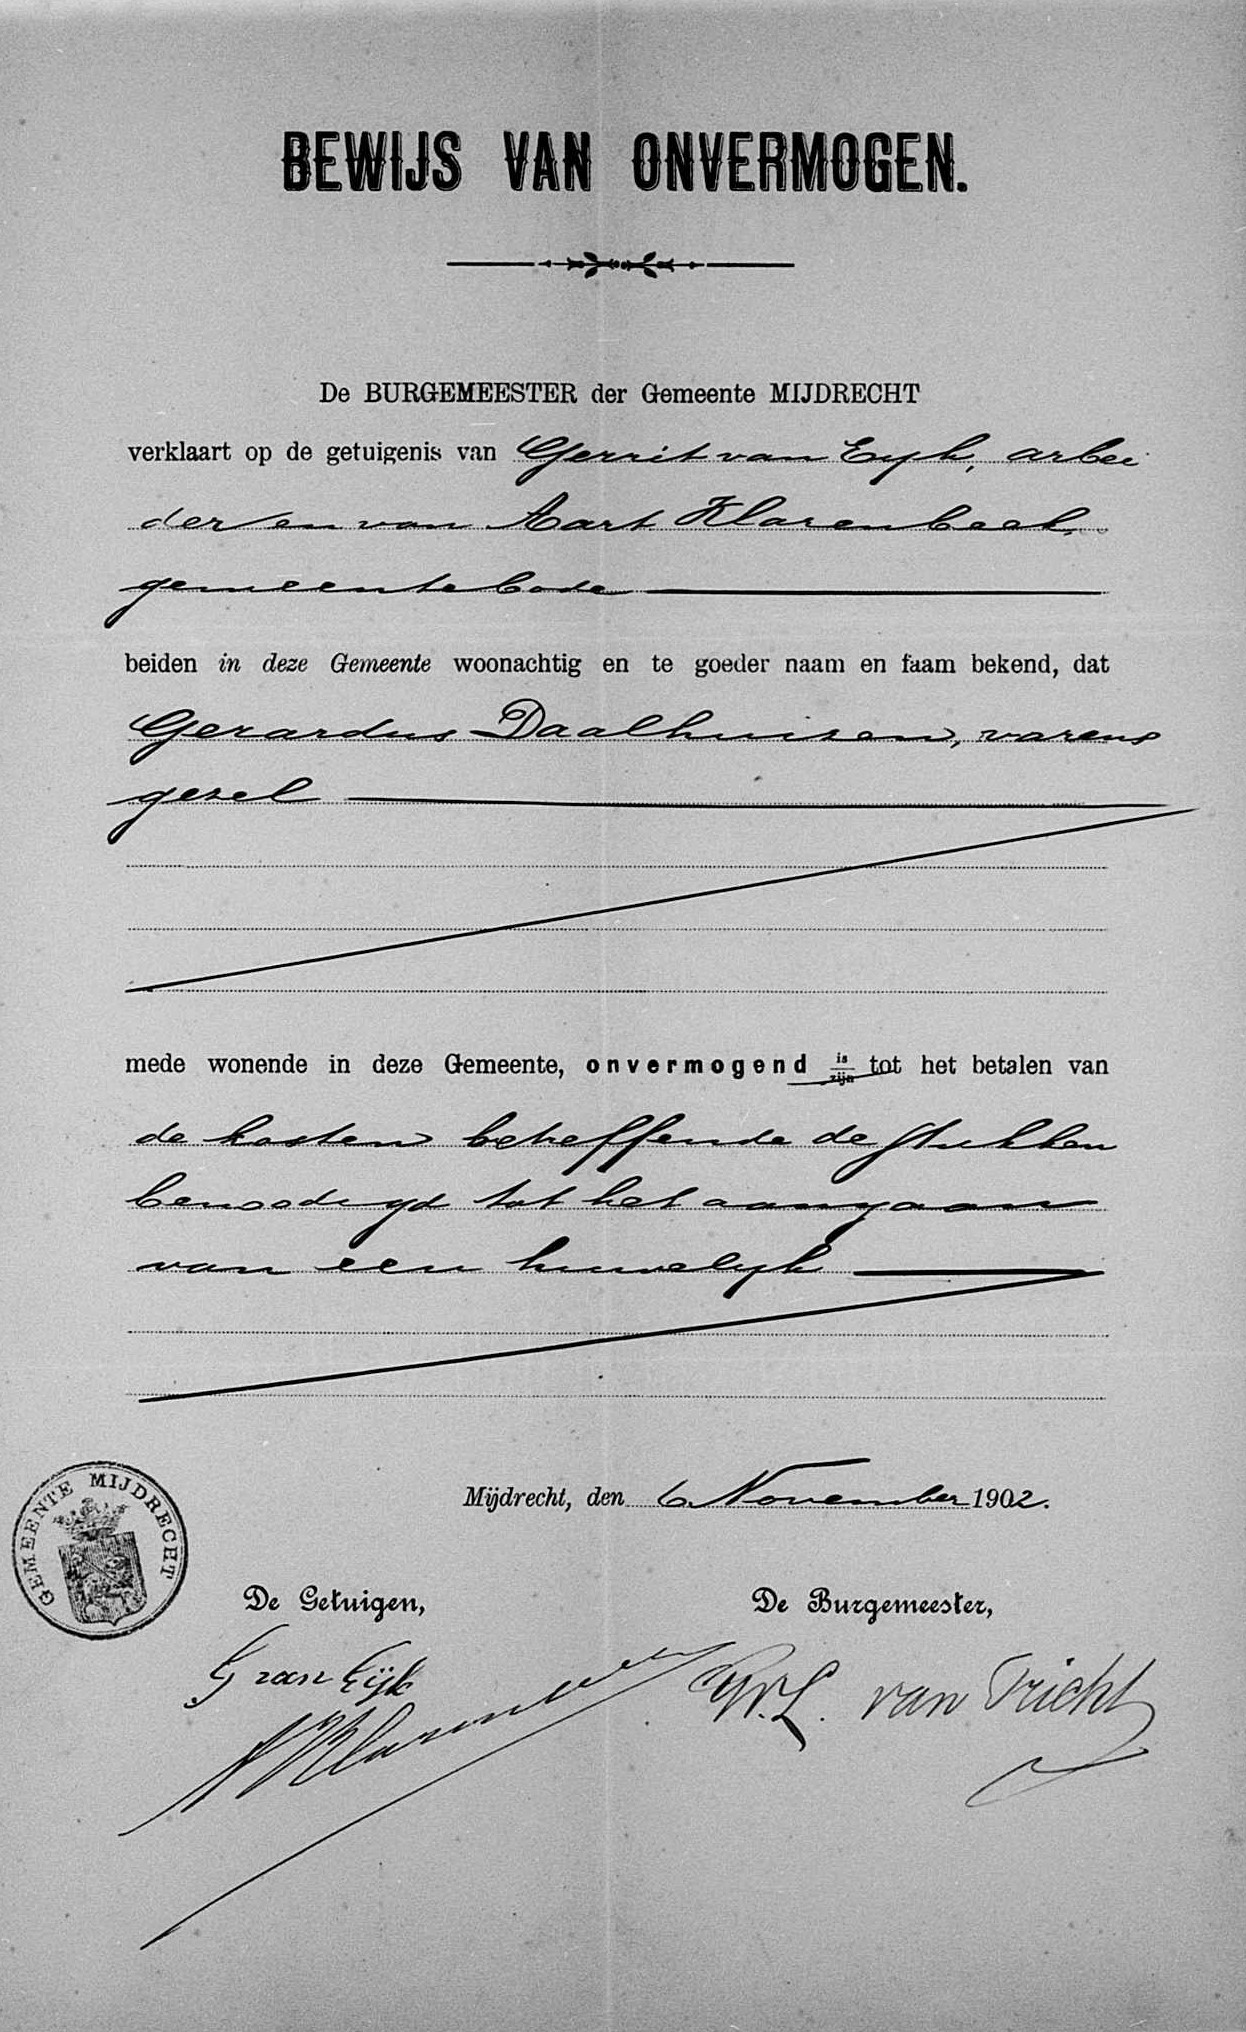 BEWIJS VAN ONVERMOGEN.
De BURGEMEESTER der Gemeente MIJDRECHT
verklaart op de getuigenis van Gerrit van Eyk, arbei
der en van Aart Klarenbeek,
gemeentebode
beiden in deze Gemeente woonachtig en te goeder naam en faam bekend, dat
Gerardus Daalhuizen, varens
gezel
mede wonende in deze Gemeente, onvermogend is zijn tot het betalen van
de kosten betreffende de stukken
benoodigd tot het aangaan
van een huwelijk
Mijdrecht, den 6 November 1902.
GEMEENTE MIJDRECHT
De Getuigen,
De Burgemeester,
G van Eijk
W.L. van Tricht
A Klarenbeek